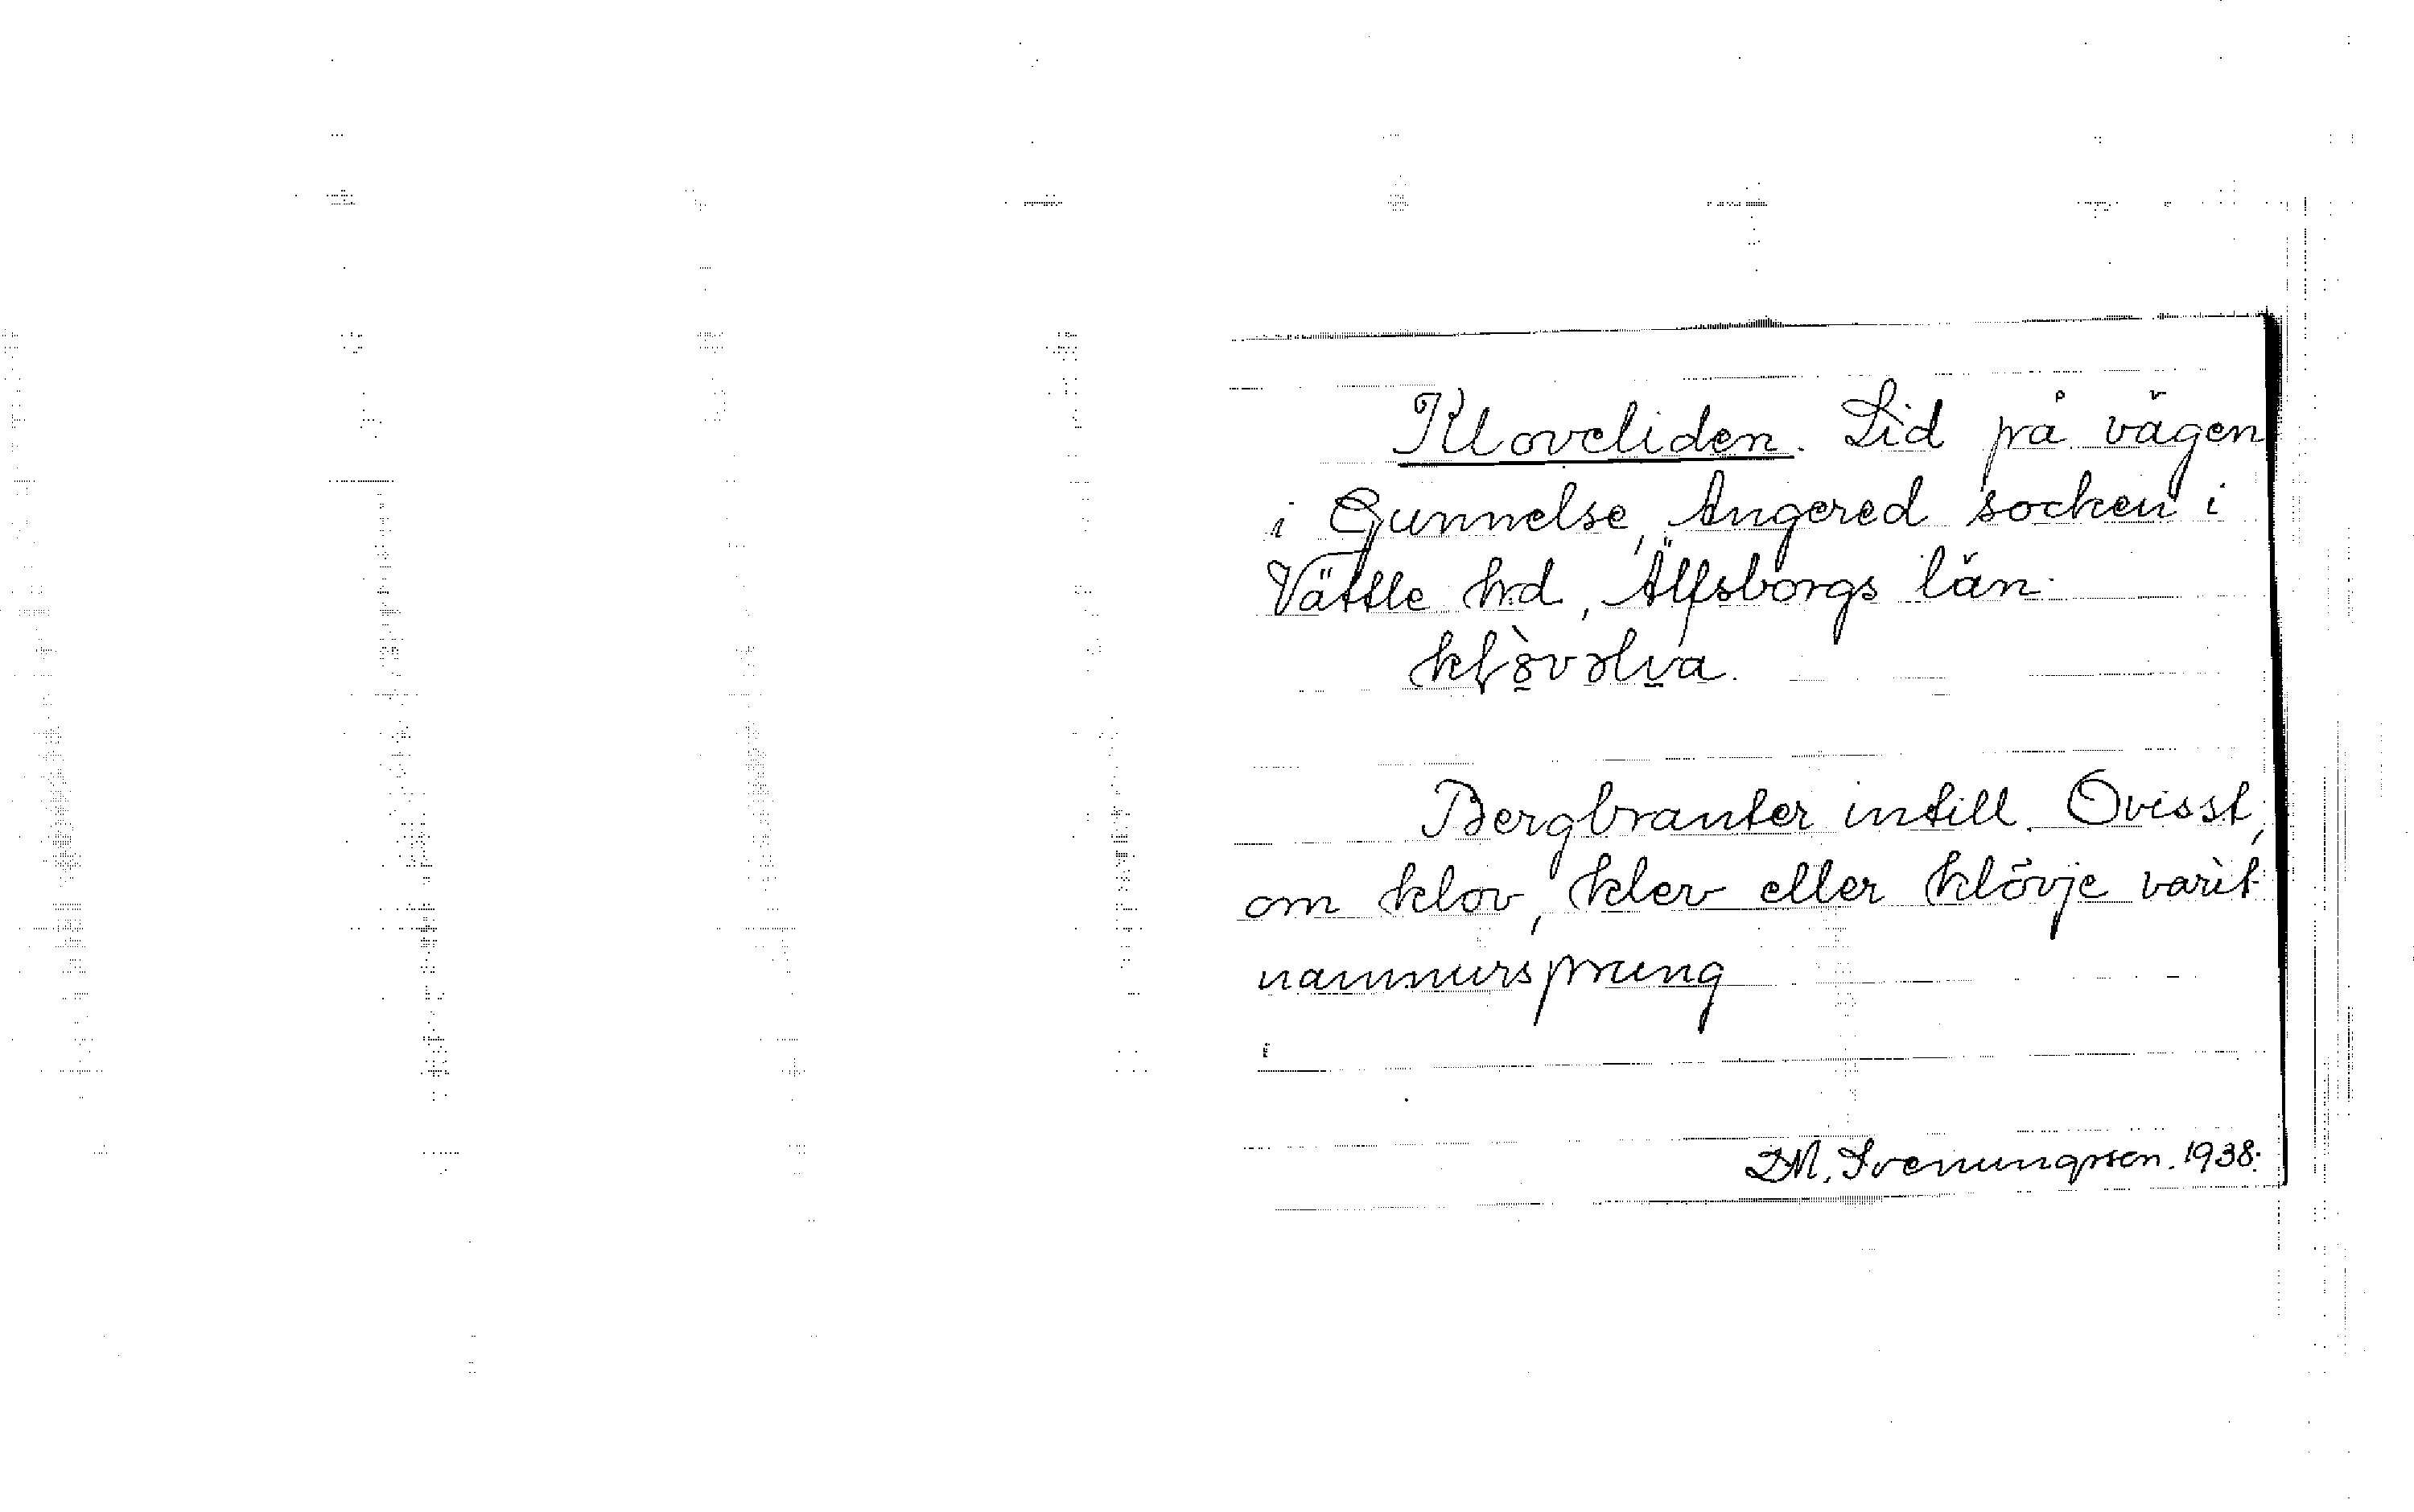 Kloveliden. Lid på vägen
i Gunnelse, Angered socken i
Vättle hd, Älfsborgs län.
Bergbranter intill. Ovisst,
om klov, klev eller klövje varit
namnursprung
D.M. Svenungsson. 1938.